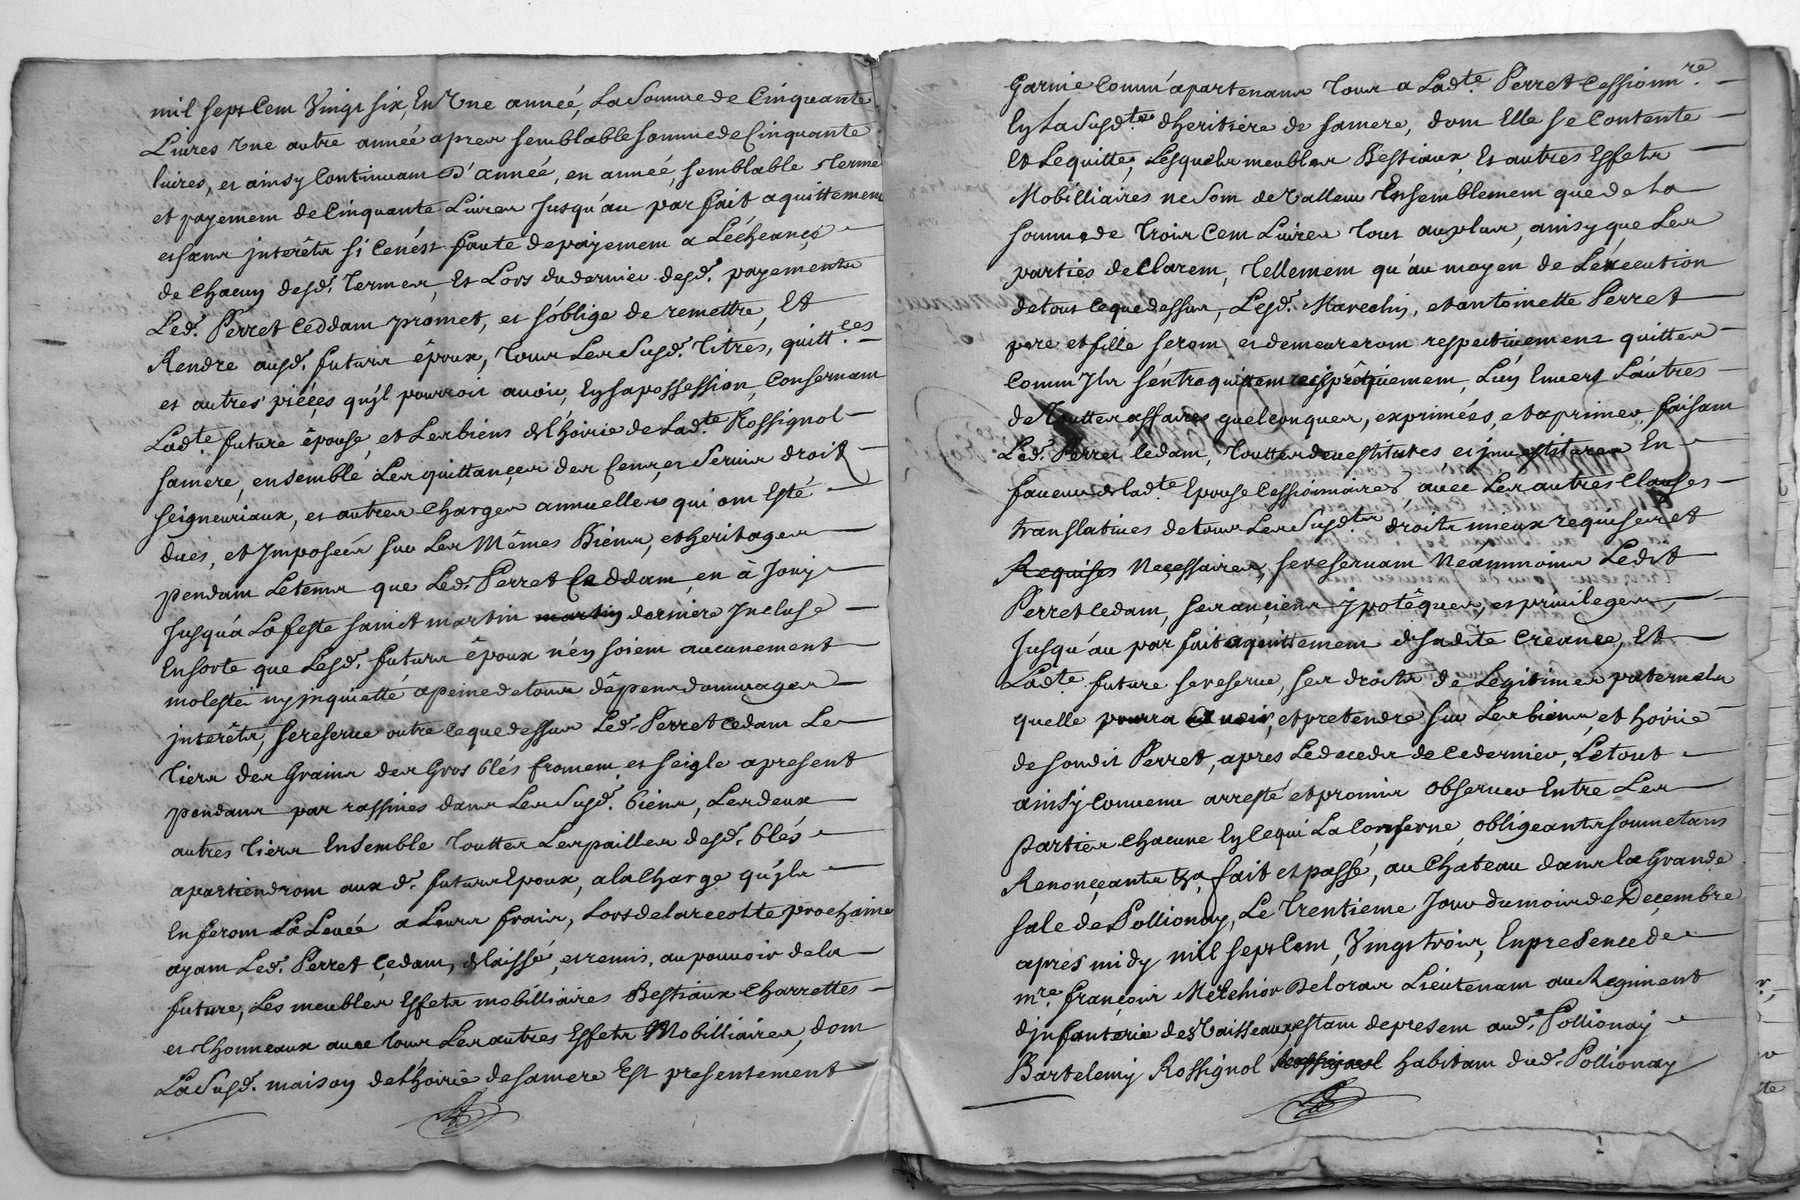 mil sept Cem Vingt six, En Vne année, La Somme de Cinquante
Liures Vne autre année apres semblable somme de Cinquante
liures, et ainsy Continuam D'année, en année, semblable Terme
et payemem de Cinquante Liures Jusqu'au par fait aquittement
et sans jnterêts si cenést faute de payemem a Lécheance
de Chacun desd. Termes, Et Lors du dernier desd. payements
Led. Perret Ceddam promet, et s'oblige de remettre, Et
Rendre ausd. futurs époux, Tous Les Susd. Titres, quitt.ces
et autres piéçes qu'jl pourroit auoir, En sa possession, Consernam
Ladte. future épouse, et Les biens & l'hoirie de Ladte. Rossignol
samere, ensemble Les quittançes des Cens, et Seruis droit
seigneuriaux, et autres Charges annuelles qui om Esté
dues, et Jmposées sur Les Mêmes Biens, et heritages
pendam Letems que Led. Perret Ceddam, en à Jouy
Jusqu'a La feste sainct martin martin derniere Jncluse
Ensorte que Lesd. futurs époux n'en soiem aucunement
molesté ny jnquietté apeine de tous dépens dommages
jnterêts, se reserue outre ceque dessus Led. Perret cedam Le
Tiers des Grains des Gros blés fromem et seigle apresent
pendans par rassines dans Les Susd. biens, Les deux
autres Tiers Ensemble Touttes Les pailles desd. blés
apartiendrom aux d. futurs Epoux, a la Charge qu'jls
En ferom La Leuée a Leurs frais, Lors de la recolte prochaine
ayam Led. Perret Çedam, delaissé, et remis, au pouuoir de la
future, Les meubles Effets mobilliaires Bestiaux Charrettes
et Thonneaux auec Tous Les autres Effets Mobilliaires, dom
La Susd. maison de l'hoirie de samere Est presentement
Garnie Comm' apartenans Tous a Ladte. Perret Cessionnre.
En La Susdte. dheritiére de samere, dom Elle se Contente
Et Lequitte, Lesquels meubles Bestiaux, Et autres Effets
Mobilliaires ne Som de Valleur Ensemblemem que de La
somme de Trois Cem Liures Tout au plus, ainsy que Les
parties deClarem, Tellemem qu'au moyen de Léxecution
de tout Ceque dessus, Lesd. Marechin, et antoinette Perret
pere et fille serom et demeurerom respectiuement quittes
Comm' Jls séntraquittem reciproquemem, L'un Enuers L'autres
de Touttes affaires quelconques, exprimées, et aprimer, faisam
Led. Perret Cedam, Touttes deuestitures et jnuestitures En
faueur de ladte. Epouse Cessionnaires, auec Les autres Clauses
translatiues de tous Les Susdts. droits mieux requise et
Requises Neçessaires se reseruam Néammoins Ledit
Perret Cedam, ses ançiens ypotêques, et priuileges,
Jusqu'au par fait aquittemem de sadite Créance, Et
Ladte. future se reserue, ses droits de Legitimes paternels
quelle pourra auoir, et pretendre sur Les biens, et hoirie
desondit Perret, apres Ledeceds de Cedernier, Le tout
ainsy Conuenu arresté et promis Obseruer Entre Les
parties Chacune En Cequi La Conserne, obligeants soumetans
Renonçeants &a fait et passé, au Chateau dans la Grande
sale de Pollionay, Le Trentieme Jour du mois de Deçembre
aprés midy mil sept Cem, Vingt trois, En presence de
mre. françois Melchior Deloras Lieutenam au Regiment
d'jnfanterie des Vaisseaux, estam de presem aud. Pollionay
Bartelemy Rossignol habitam dud. Pollionay